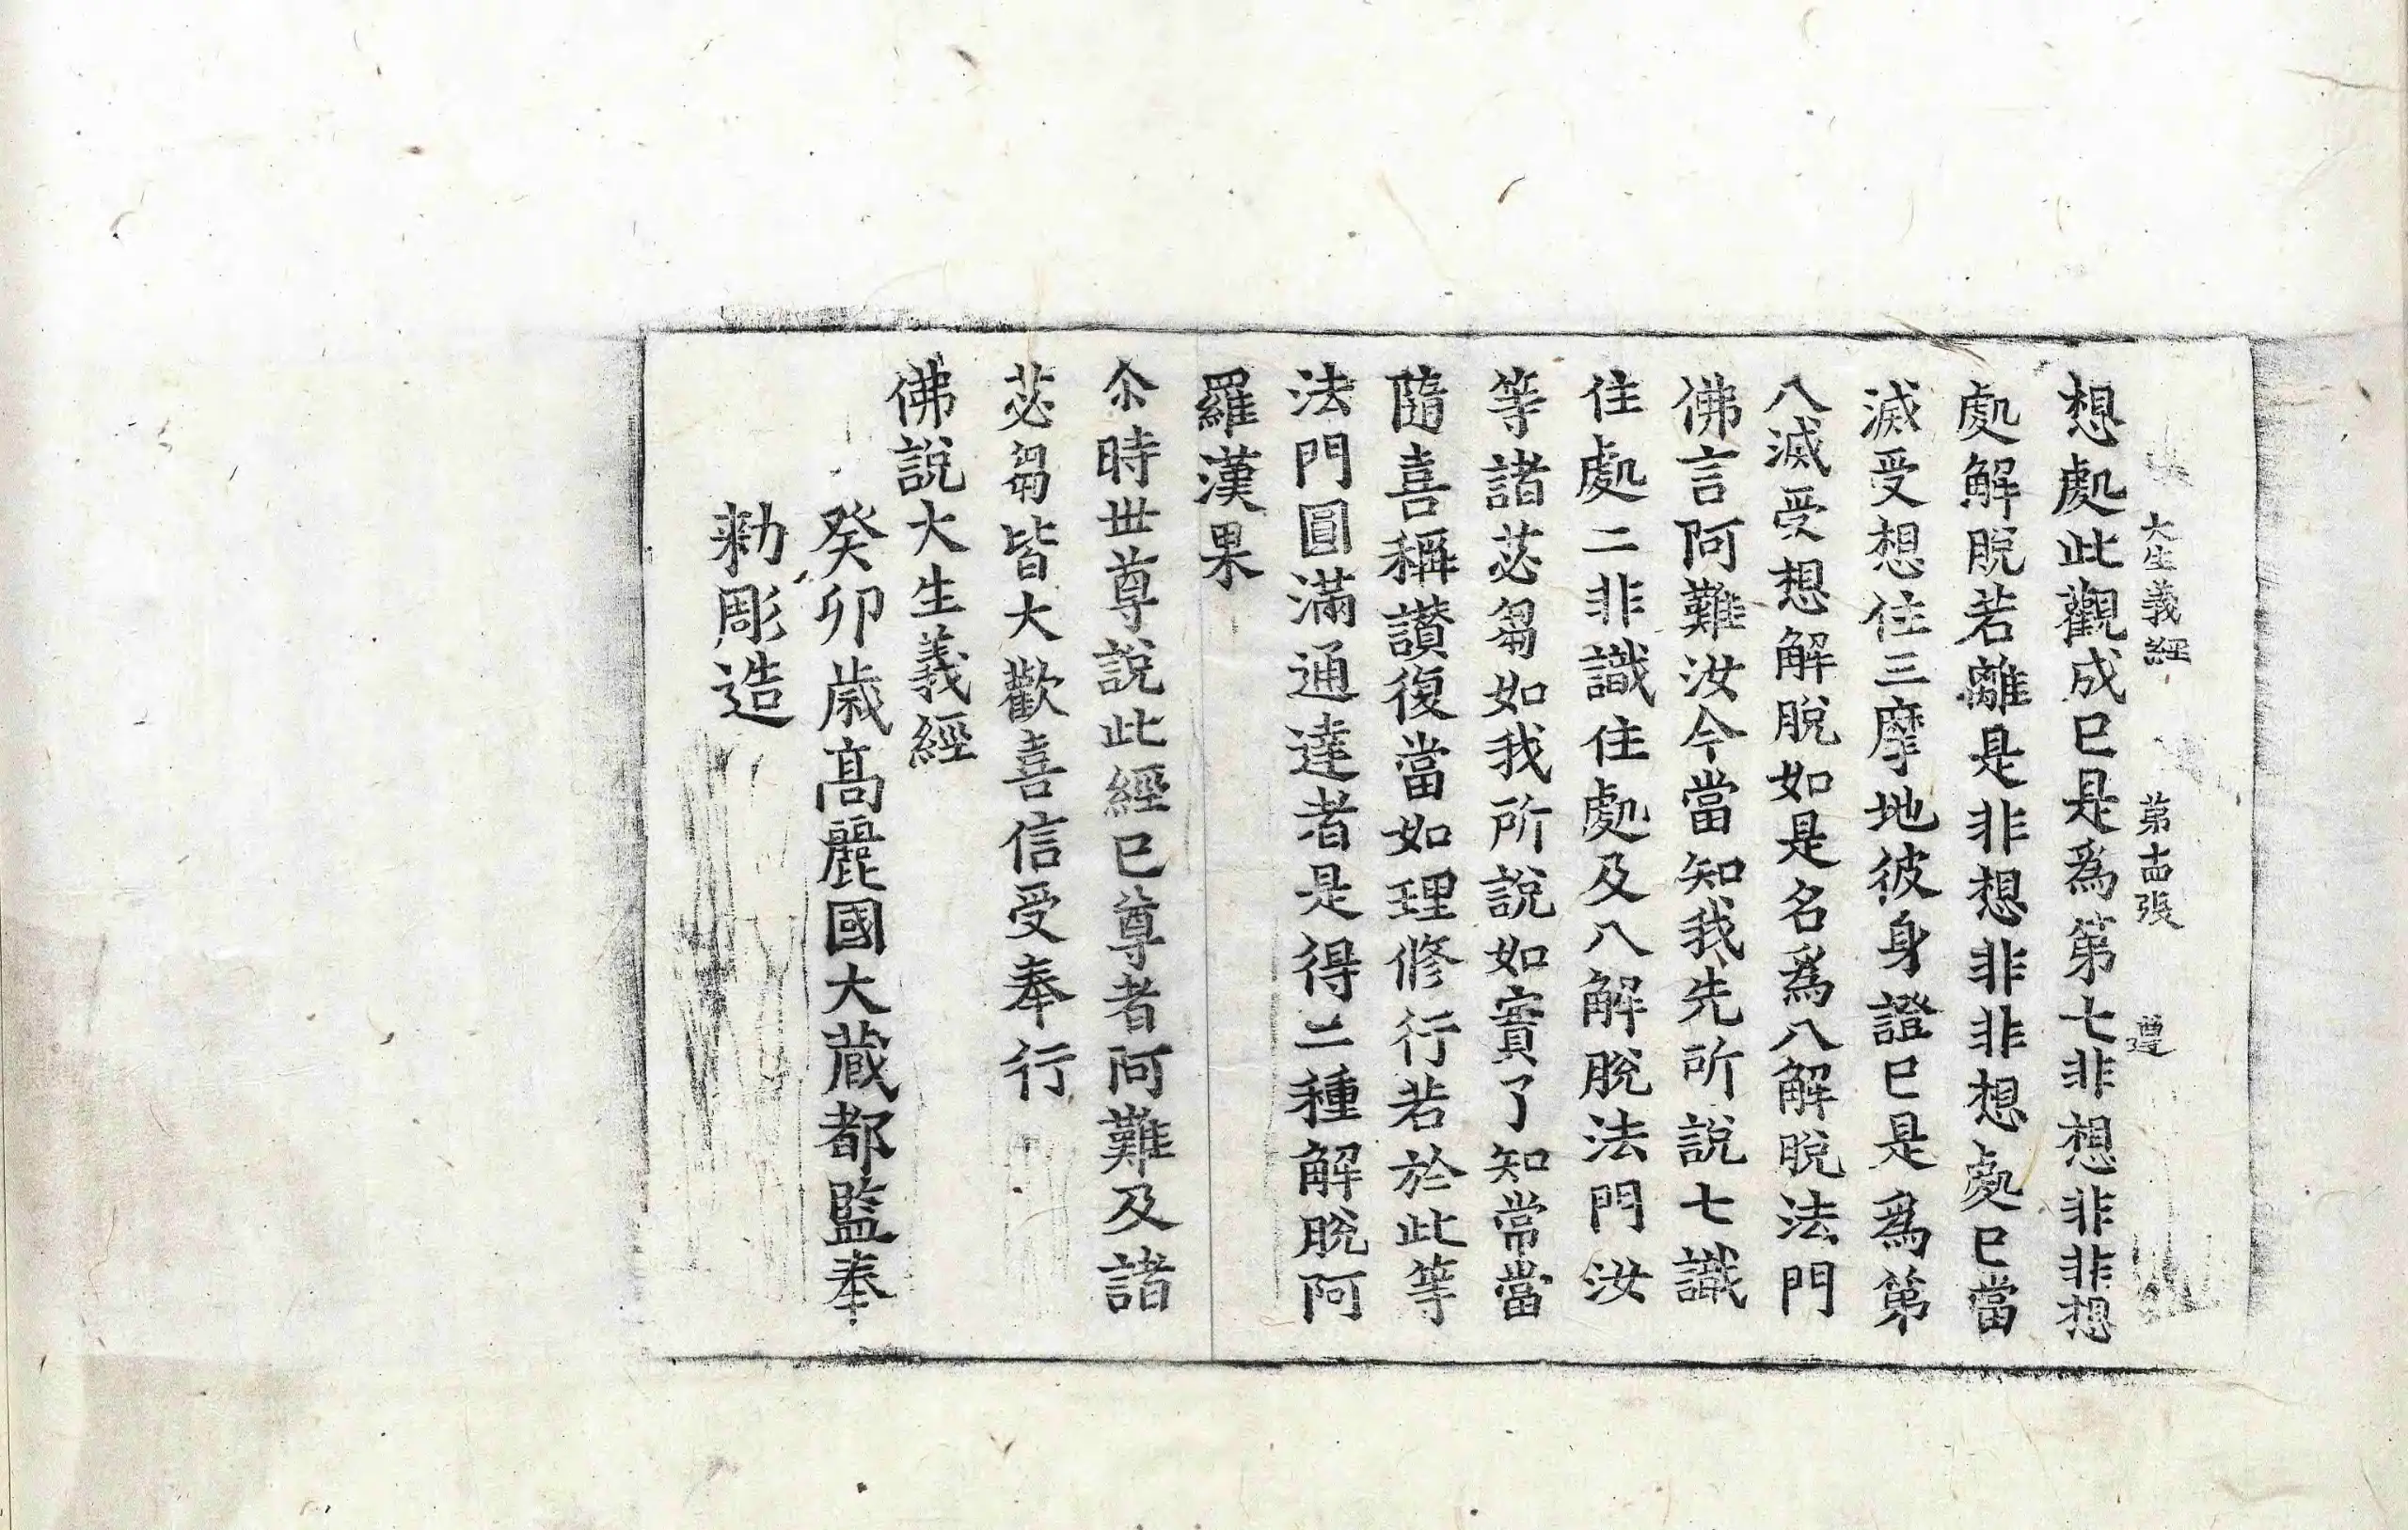 大生義經 第十四張 遵
想處此觀成已是爲第七非想非非想
處解脫若離是非想非非想處已當
滅受想住三摩地彼身證已是爲第
八滅受想解脫如是名爲八解脫法門
佛言阿難汝今當知我先所說七識
住處二非識住處及八解脫法門汝
等諸苾芻如我所說如實了知常當
隨喜稱讚復當如理修行若於此等
法門圓滿通達者是得二種解脫阿
羅漢果
尒時世尊說此經已尊者阿難及諸
苾芻皆大歡喜信受奉行
佛說大生義經
癸卯歲高麗國大藏都監奉
勑彫造